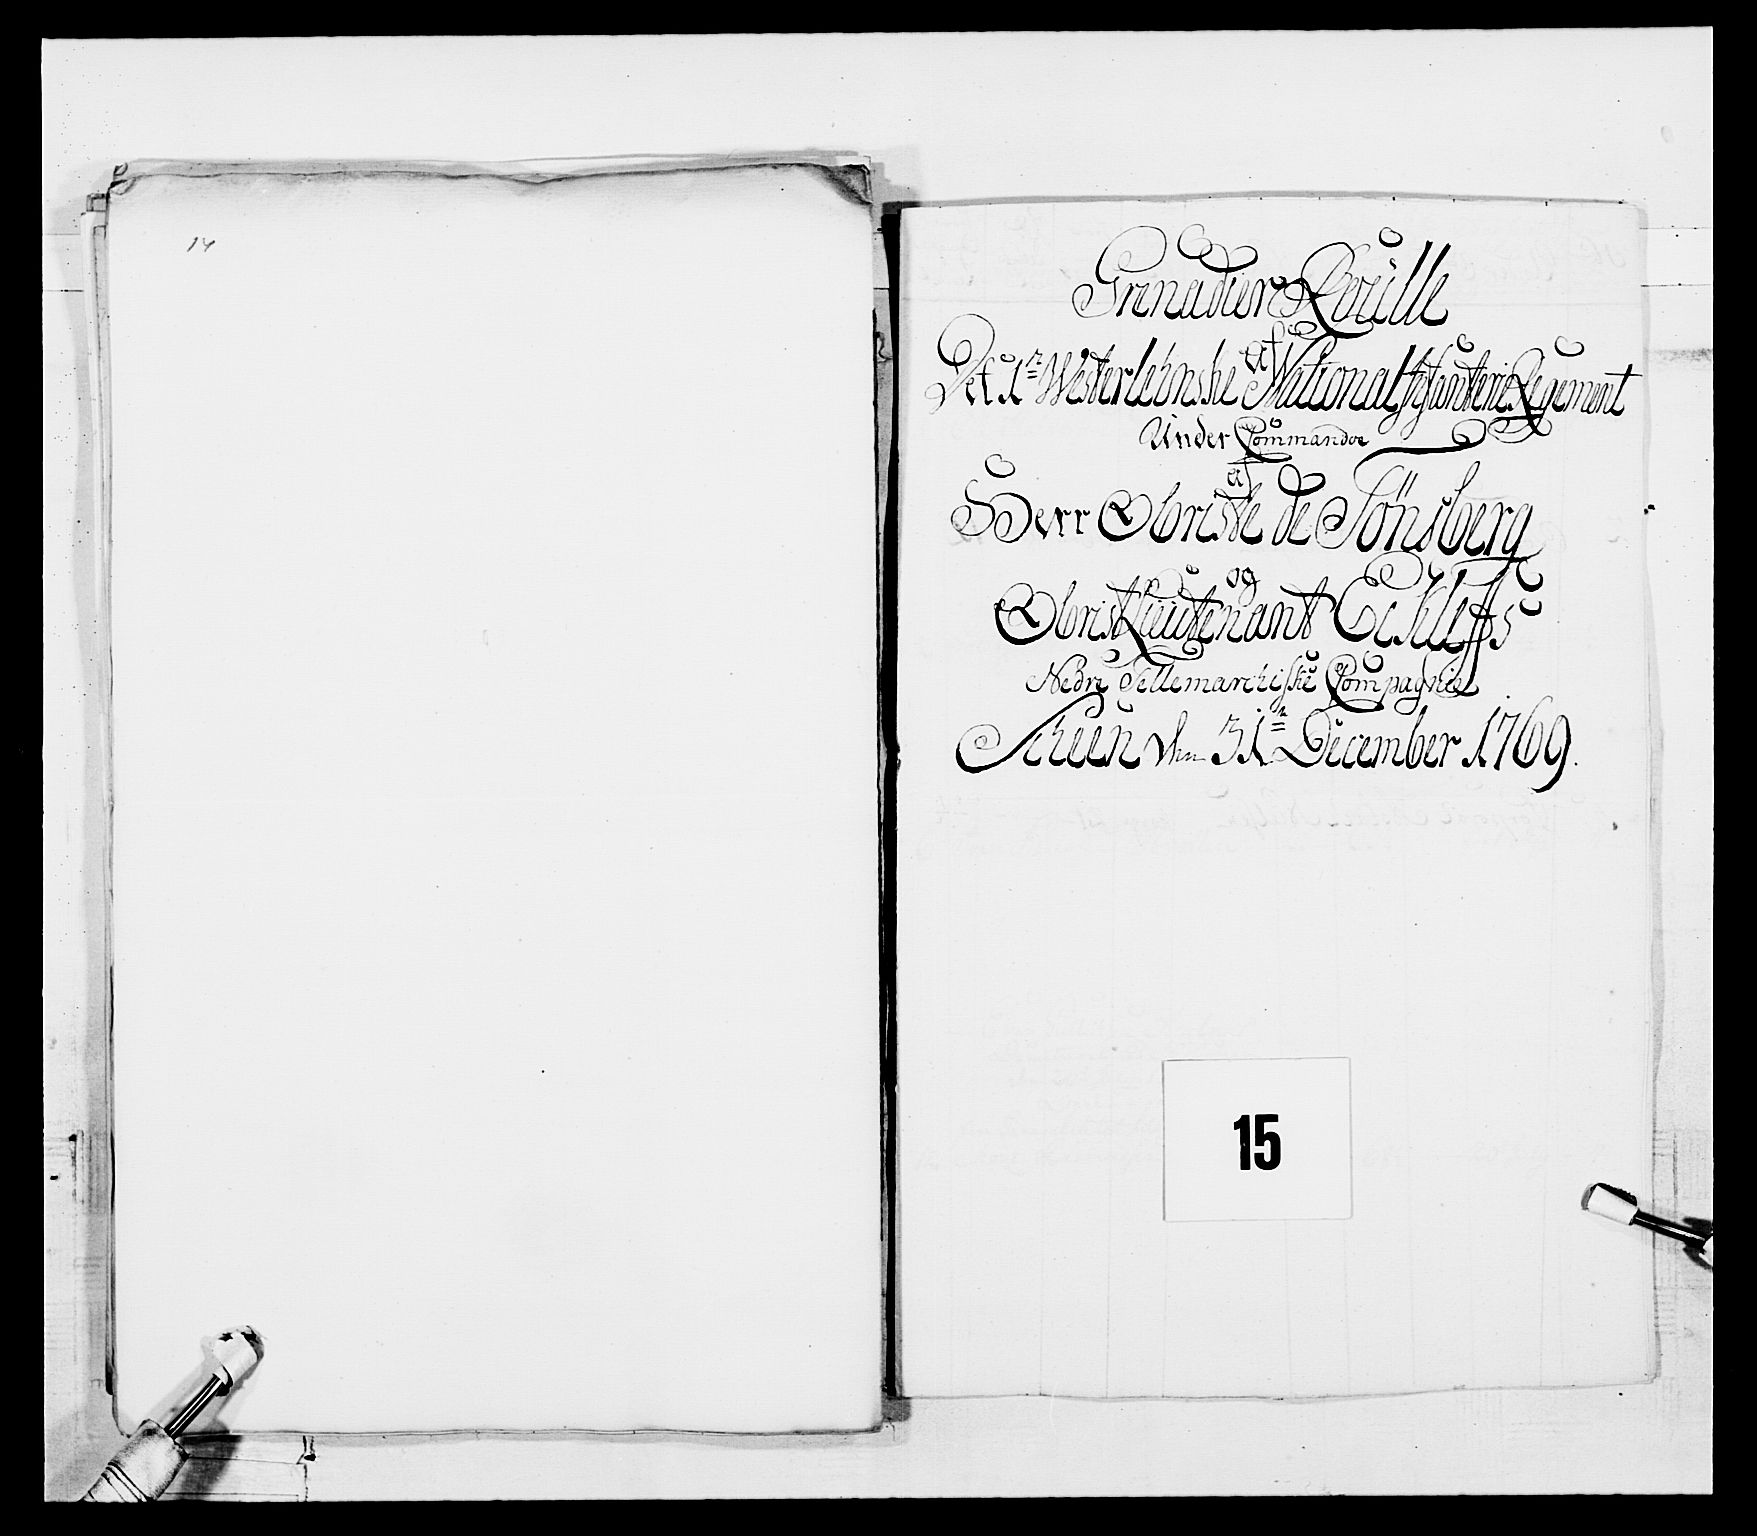 14
Grenadier Roülle
af
Det 1te Westerlehnske National Infanterie Regement
Under Commando
af
Herr Obriste de Tönsberg
og
Obrist Lieutenant Eckleffs
Nedre Tellemarchiske Compagnie
Scheen den 31te December 1769.
15